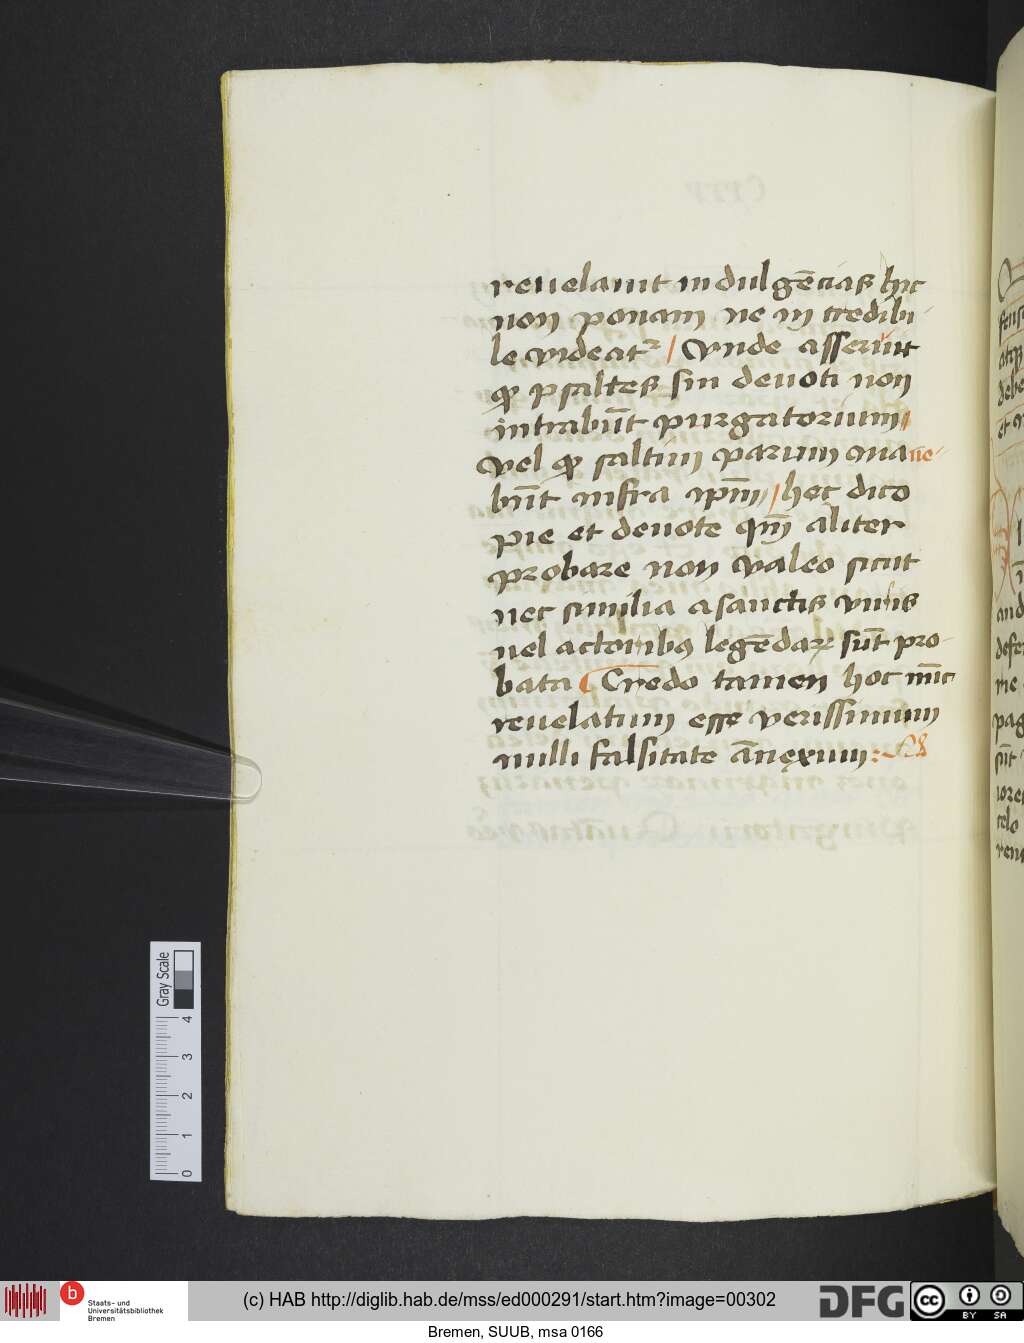 reuelauit indulgēcias hic
non ponam ne in credibi-
le videatr / Vnde asserūt
qꝫ psaltes sin deuoti non
intrabūt purgatorium //
vel qꝫ saltim parum mane-
būt infra ipm̄ // hec dico
pie et deuote qm̄ aliter
probare non valeo sicut
nec similia a sanctis viris
uel actoribꝫ legēdaꝝ sūt pro-
bata Credo tamen hoc
reuelatum esse verissimum
nulli falsitate ānexum :
Gray Scale
0 1 2 3 4
b
Staats- und
Universitätsbibliothek
Bremen
(c) HAB http://diglib.hab.de/mss/ed000291/start.htm?image=00302
DFG
cc BY SA
Bremen, SUUB, msa 0166